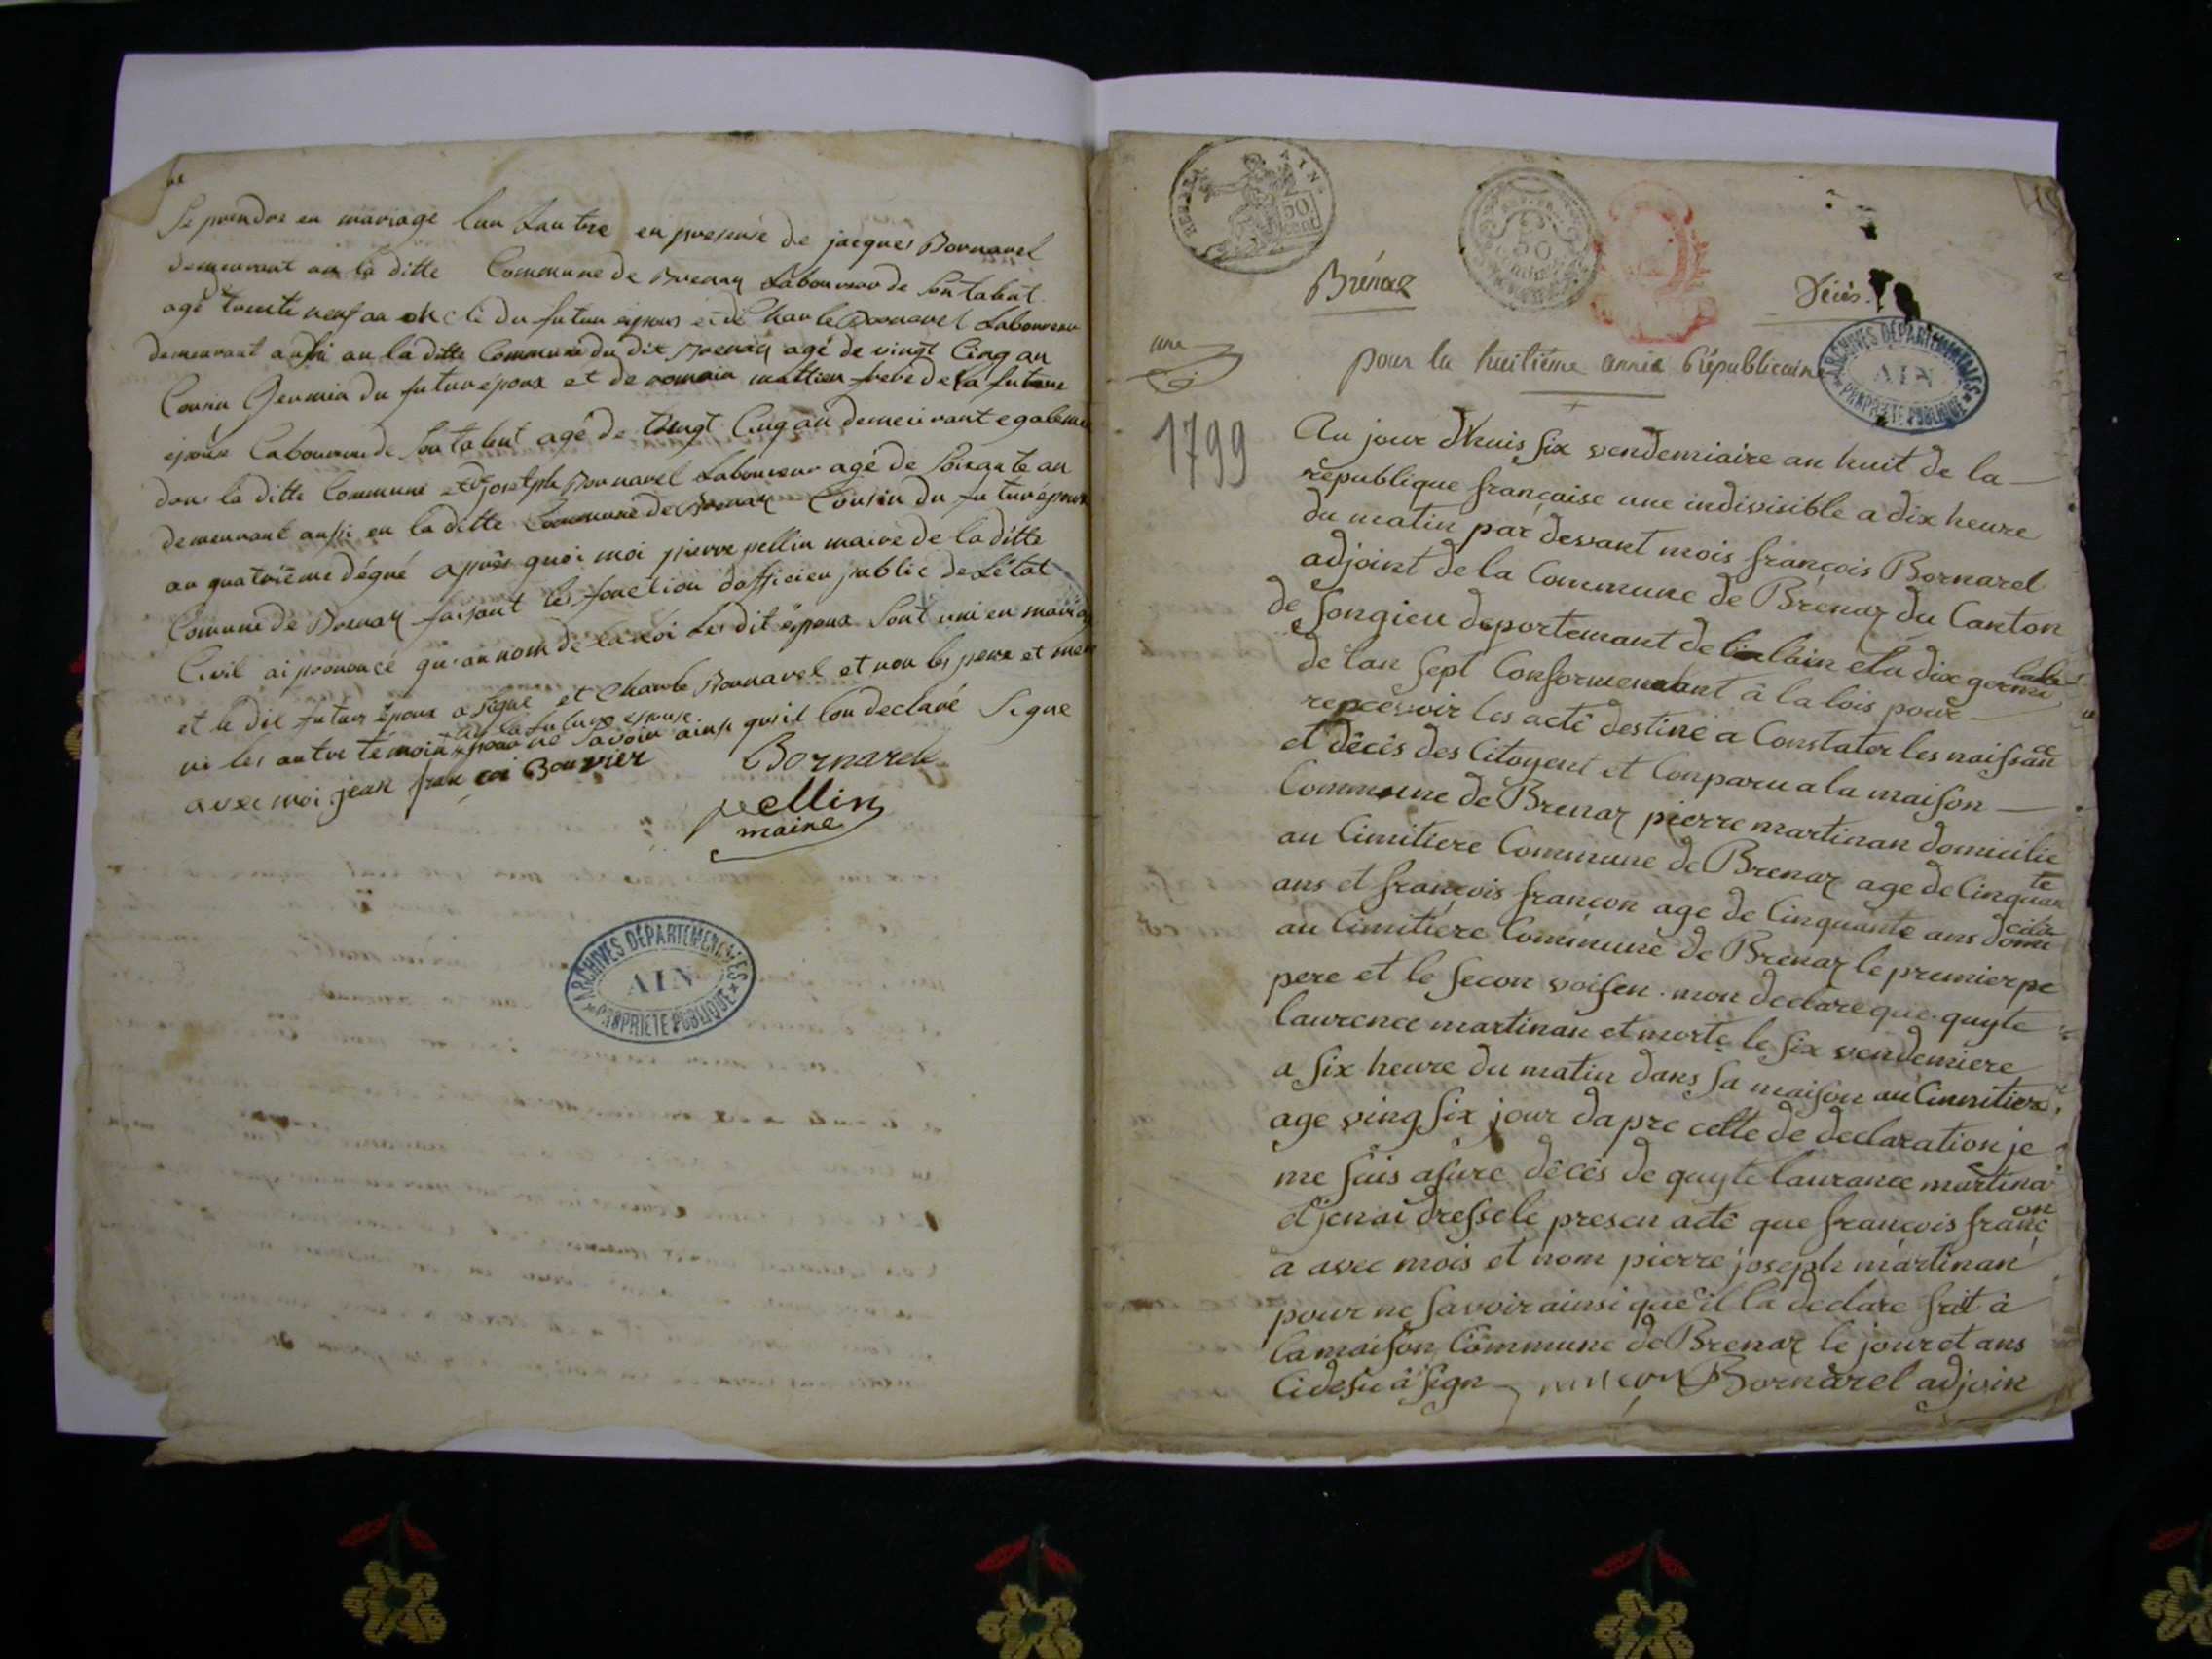 Se prendre en mariage lun Lautre en presensse de jacques Bornarel
demeurant au la ditte Commune de Brenaz Laboureur de Son tabut
agé trente neuf an oncle du futur epoux et de Charle Bornarel Laboureur
demeurant aussi au la ditte Commune du dit Brenaz agé de vingt Cinq an
Cousin Germin du futur époux et de romain mattieu frere de la future
epouse Laboureur de Son tabut agé de vingt Cinq an demeurant egalement
dans la ditte Commune et joseph Bornarel Laboureur agé de Soixante an
demeurant aussi en la ditte Commune de Brenaz Cousin du futur époux
au quatrième dégré après quoi moi pierre pellin maire de la ditte
Comune de Brenaz faisant les fonction dofficier public de Létat
Civil ai prononcé qu'au nom de la Loi Les dit époux Sont uni en mariage
et le dit futur époux a Signé et Charle Bornarel et non les pere et mere
ni la future epouse
ni les autre témoin pour ne Savoir ainsi qu'il lon declaré Signe
avec moi jean fran çoi Bouvier Bornarel
pellin
maire
ARCHIVES DÉPARTEMENTALES
AIN
PROPRIÉTÉ PUBLIQUE
AIN
50
cent
50
Brénaz
Décés.
ARCHIVES DÉPARTEMENTALES
AIN
PROPRIÉTÉ PUBLIQUE
une
pour la huitième année Républicaine
1799
Au jour dhuis six vendemiaire an huit de la
republique française une indivisible a dix heure
du matin par devant mois françois Bornarel
adjoint de la Commune de Brénaz du Canton
de Songieu deportemant de lain elu dix germi
de lan sept Conformemant â la lois pour
repcesvoir les actê destine a Constater les naissan ce
et dêcês des Citoyent et Conparu a la maison
Commune de Brenaz pierre martinan domicilie
au Cimitiere Commune de Brenaz age de Cinquan te
ans et françois françon age de Cinquante ans domi cilie
au Cimitiere Commune de Brenaz le premier pe
pere et le secon voisen mon declare que quyte
laurence martinan et morte le six vendemiere
a six heure du matin dans sa maison au Cimitiere
age ving six jour dapre cette de declaration je
me suis asure dêcês de quyte laurance martina
et jenai dressele presen actê que françois franç on
a avec mois et nom pierre joseph martinan
pour ne savoir ainsi que il la declare fait â
la maison Commune de Brenaz le jour et ans
Cidesu â sign Bornarel adjoin